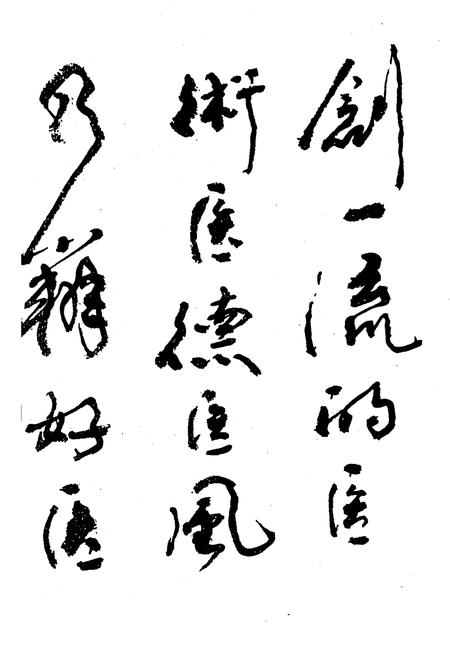 創一流的医
術医德医風
辦好医